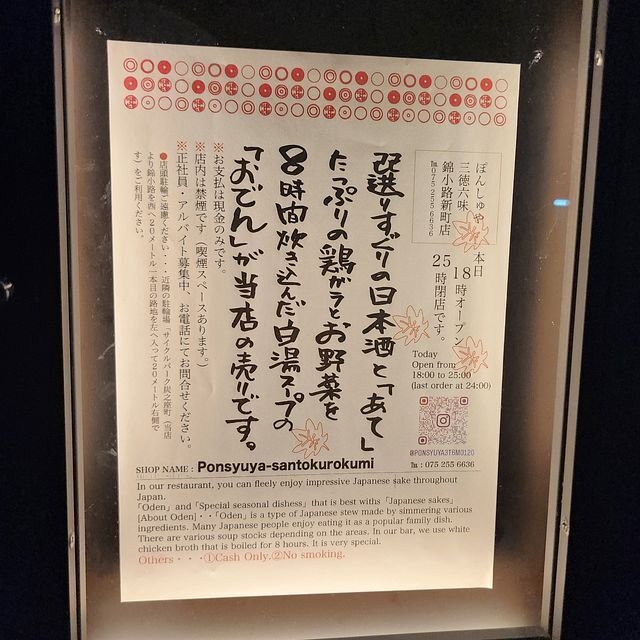 ぽんしゅや
三徳六味
錦小路新町店
℡075 255 6636
本日
18時オープン
25時閉店です。
Today
Open from
18:00 to 25:00
(last order at 24:00)
@PONSYUYA3T6M0120
℡:075 255 6636
選りすぐりの日本酒と「あて」
たっぷりの鶏ガラとお野菜を
8時間炊き込んだ白湯スープの
「おでん」が当店の売りです。
※お支払は現金のみです。
※店内は禁煙です(喫煙スペースあります。)
※正社員・アルバイト募集中、お電話にてお問合せください。
●店頭駐輪ご遠慮ください・・・近隣の駐輪場「サイクルパーク炭之座町(当店
より錦小路を西へ20メートル一本目の路地を左へ入って20メートル右側で
す)をご利用ください。
SHOP NAME : Ponsyuya-santokurokumi
In our restaurant, you can fleely enjoy impressive Japanese sake throughout
Japan.
「Oden」and「Special seasonal dishess」that is best withs「Japanese sakes」
[About Oden]・・「Oden」is a type of Japanese stew made by simmering various
ingredients. Many Japanese people enjoy eating it as a popular family dish.
There are various soup stocks depending on the areas. In our bar, we use white
chicken broth that is boiled for 8 hours. It is very special.
Others・・・①Cash Only.②No smoking.